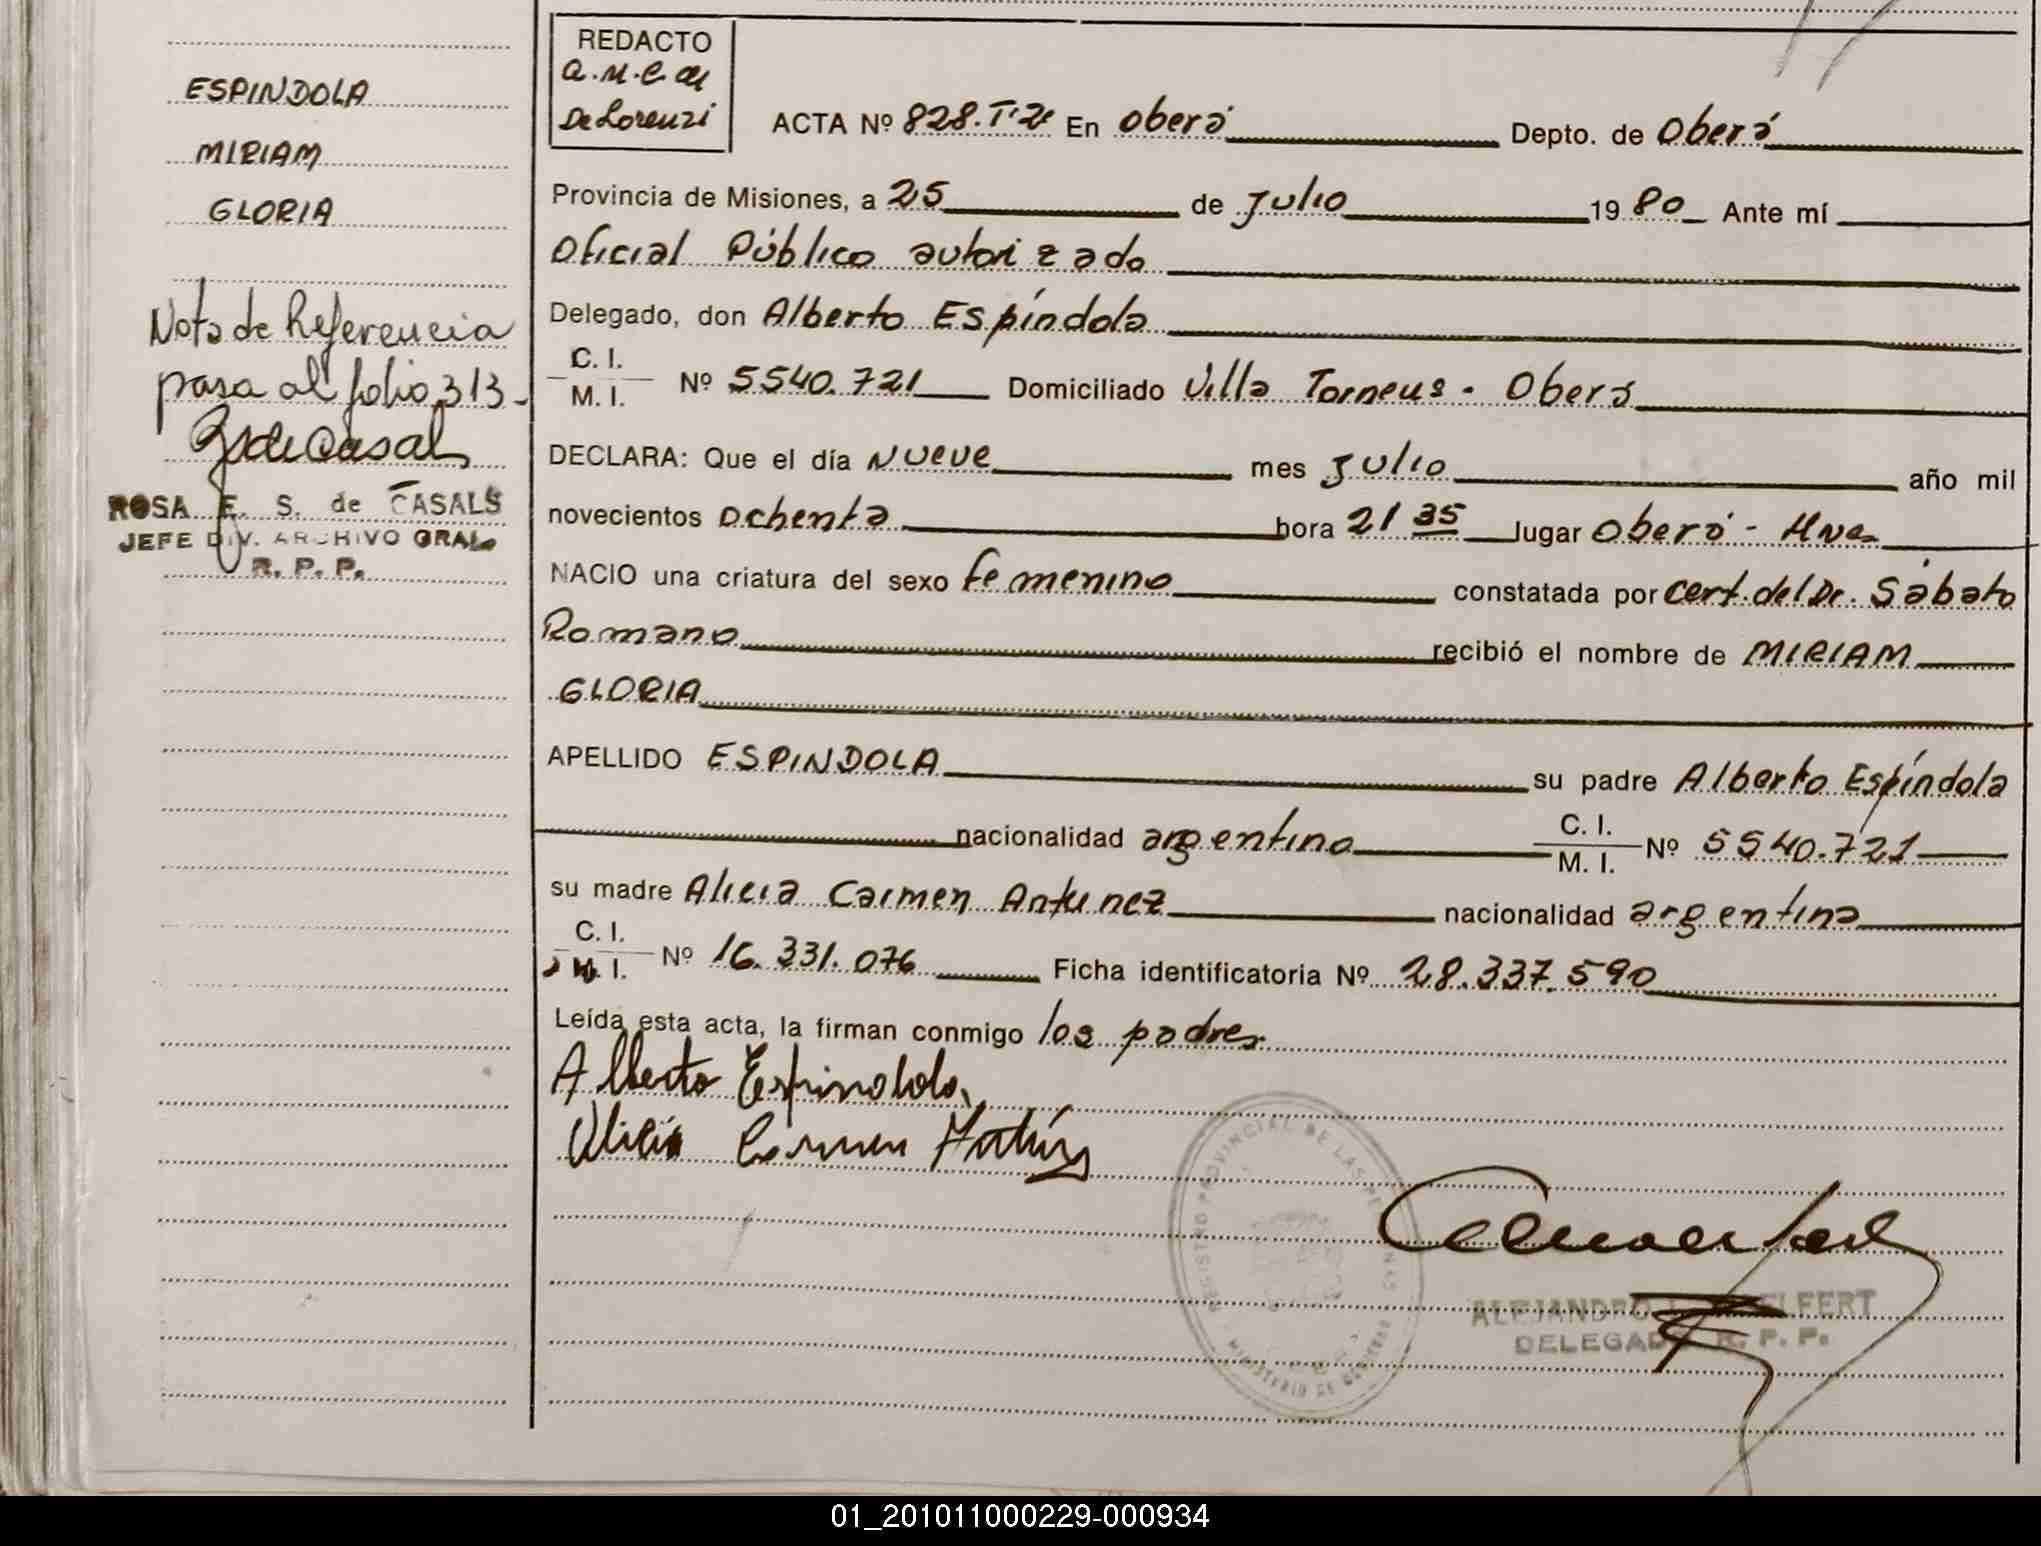 ESPINDOLA
MIRIAM
GLORIA
Nota de Referencia
pasa al folio 313-
ROSA E. S. de CASALS
JEFE DIV. ARCHIVO GRAL.
R. P. P.
REDACTO
a.M.C de
De Lorenzi
ACTA Nº 828.Tº2º En Oberá Depto. de Oberá
Provincia de Misiones, a 25 de Julio 1980 Ante mí
Oficial Público autorizado
Delegado, don Alberto Espíndola
C. I.
M. I. Nº 5.540.721 Domiciliado Villa Torneus - Oberá
DECLARA: Que el día Nueve mes Julio año mil
novecientos ochenta hora 21 35 lugar Oberá - Mnes
NACIO una criatura del sexo femenino constatada por cert. del Dr. Sábato
Romano recibió el nombre de MIRIAM
GLORIA
APELLIDO ESPINDOLA su padre Alberto Espíndola
nacionalidad argentino C. I.
M. I. Nº 5540.721
su madre Alicia Carmen Antunez nacionalidad argentina
C. I.
M. I. Nº 16.331.076 Ficha identificatoria Nº 28.337.590
Leída esta acta, la firman conmigo los padres
Alberto Espindola
Alicia Carmen Antúnez
REGISTRO PROVINCIAL DE LAS PERSONAS
MINISTERIO DE GOBIERNO
ALEJANDRO
DELEGADO R. P. P.
01_201011000229-000934